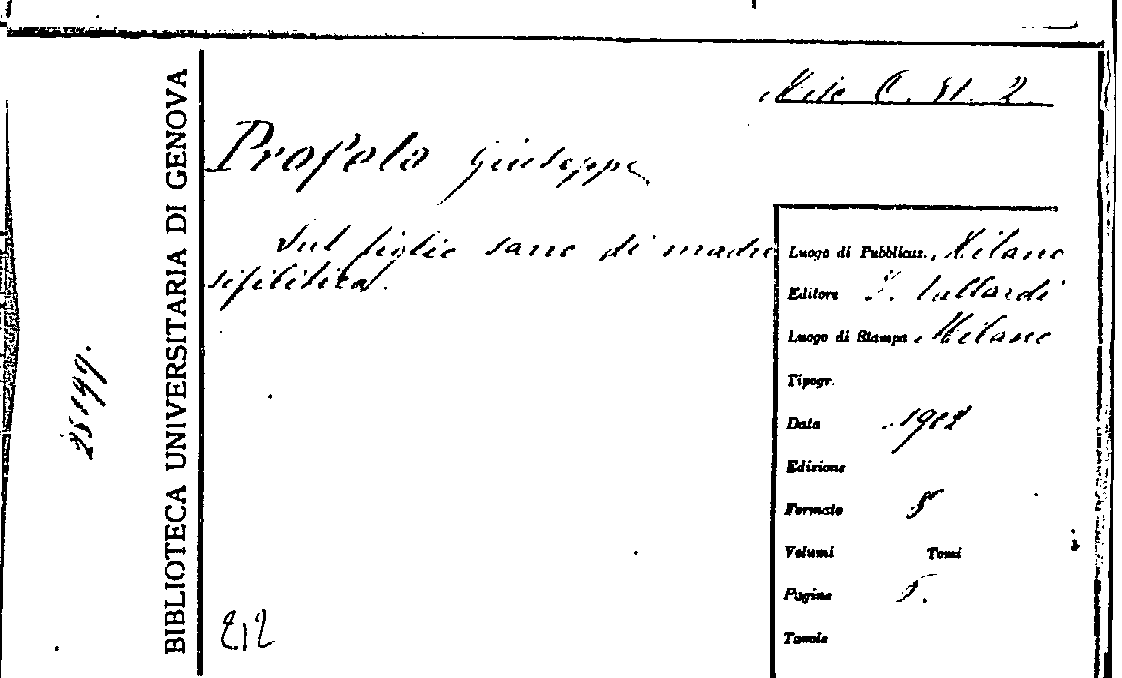 Misc C. 31. 2
Profeta Giuseppe
Sul figlio sano di madre
sifilitica.
Luogo di Pubblicaz. Milano
Editore F. Vallardi
Luogo di Stampa Milano
Tipogr.
Data 1912
Edizione
Formato 8
Volumi Tomi
Pagine
Tavole
BIBLIOTECA UNIVERSITARIA DI GENOVA
25199.
212